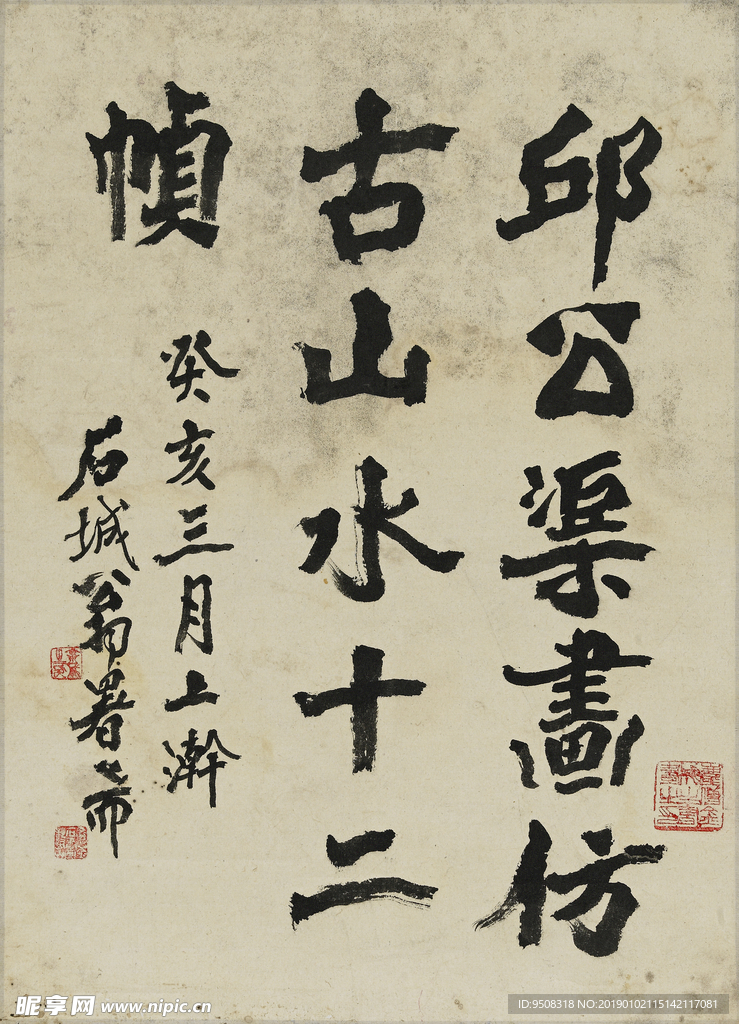 邱公渠畫仿
古山水十二
幀
癸亥三月上澣
石城翁署耑
昵享网 www.nipic.cn
ID:9508318 NO:20190102115142117081